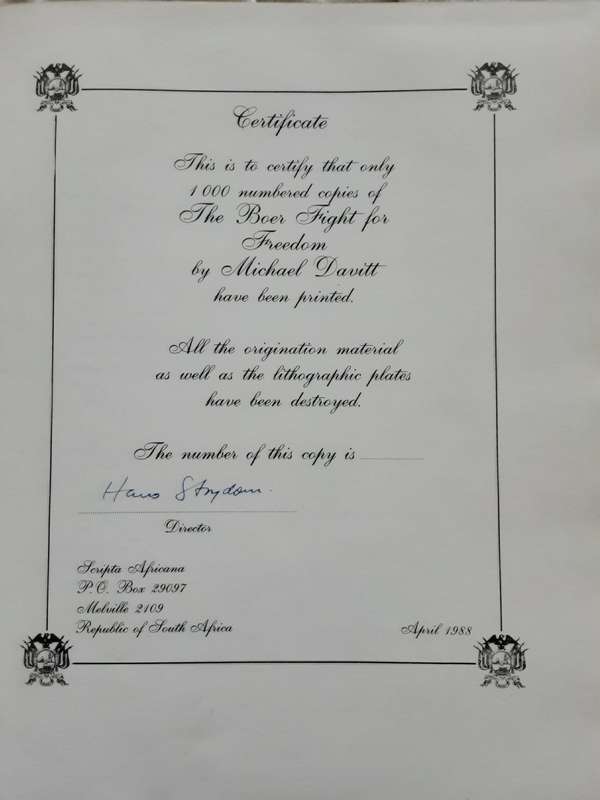 Certificate
This is to certify that only
1 000 numbered copies of
The Boer Fight for
Freedom
by Michael Davitt
have been printed.
All the origination material
as well as the lithographic plates
have been destroyed.
The number of this copy is
Hans Strydom
Director
Scripta Africana
P.O. Box 29097
Melville 2109
Republic of South Africa
April 1988